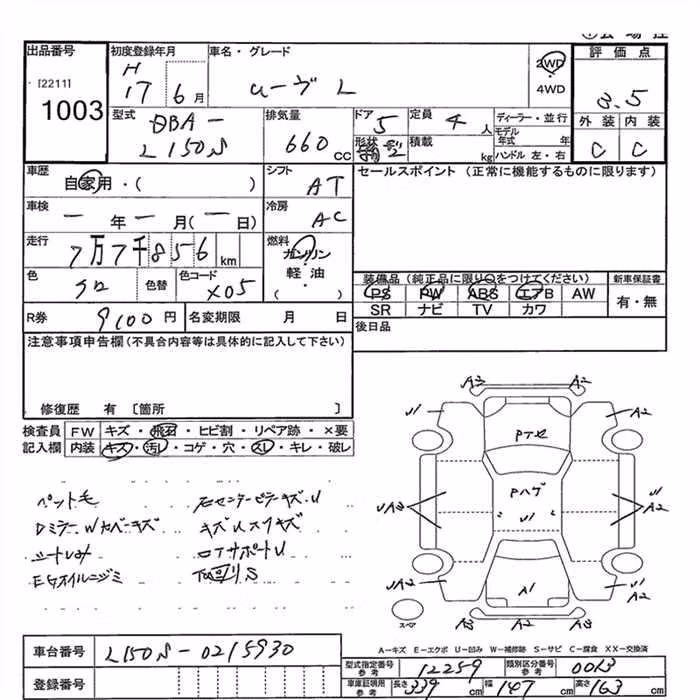 出品番号 初度登録年月 車名・グレード 2WD 評価点
[2211] H 4WD
1003 17 6月 ムーヴ L 3.5
型式 DBA- 排気量 ドア 定員 ディーラー・並行 外装 内装
L150S 660cc 5 4人 モデル年式 年 C C
形状 積載 kg ハンドル 左・右
車歴 シフト セールスポイント(正常に機能するものに限ります)
自家用・( ) AT
車検 冷房
一年一月(一日) AC
走行 燃料
7万7千856km ガソリン
色 色替 色コード 軽油 装備品(純正品に限り○をつけてください) 新車保証書
クロ X05 ( ) PS PW ABS エアB AW 有・無
SR ナビ TV カワ
R券 9100円 名変期限 月 日 後日品
注意事項申告欄(不具合内容等は具体的に記入して下さい)
修復歴 有〔箇所 〕
検査員 FW キズ・飛石・ヒビ割・リペア跡・×要
記入欄 内装 キズ・汚レ・コゲ・穴・スレ・キレ・破レ
A3 A2
U1 A2
Pアセ
Pハゲ
UA3 U1 U1 A2
ペット毛 右センターピラーキズ、U
Dミラー、Wカバーキズ キズUスリキズ
シートしみ ロアサポートU
EGオイルニジミ
A1
UA2 U1 A2
スペア A3 A2 A3
A-キズ E-エクボ U-凹み W-補修跡 S-サビ C-腐食 XX-交換済
車台番号 L150S-0215930
登録番号
型式指定番号 参考 12259 類別区分番号 参考 0013
車庫証明用 参考 長さ 339cm 幅 147cm 高さ 163cm